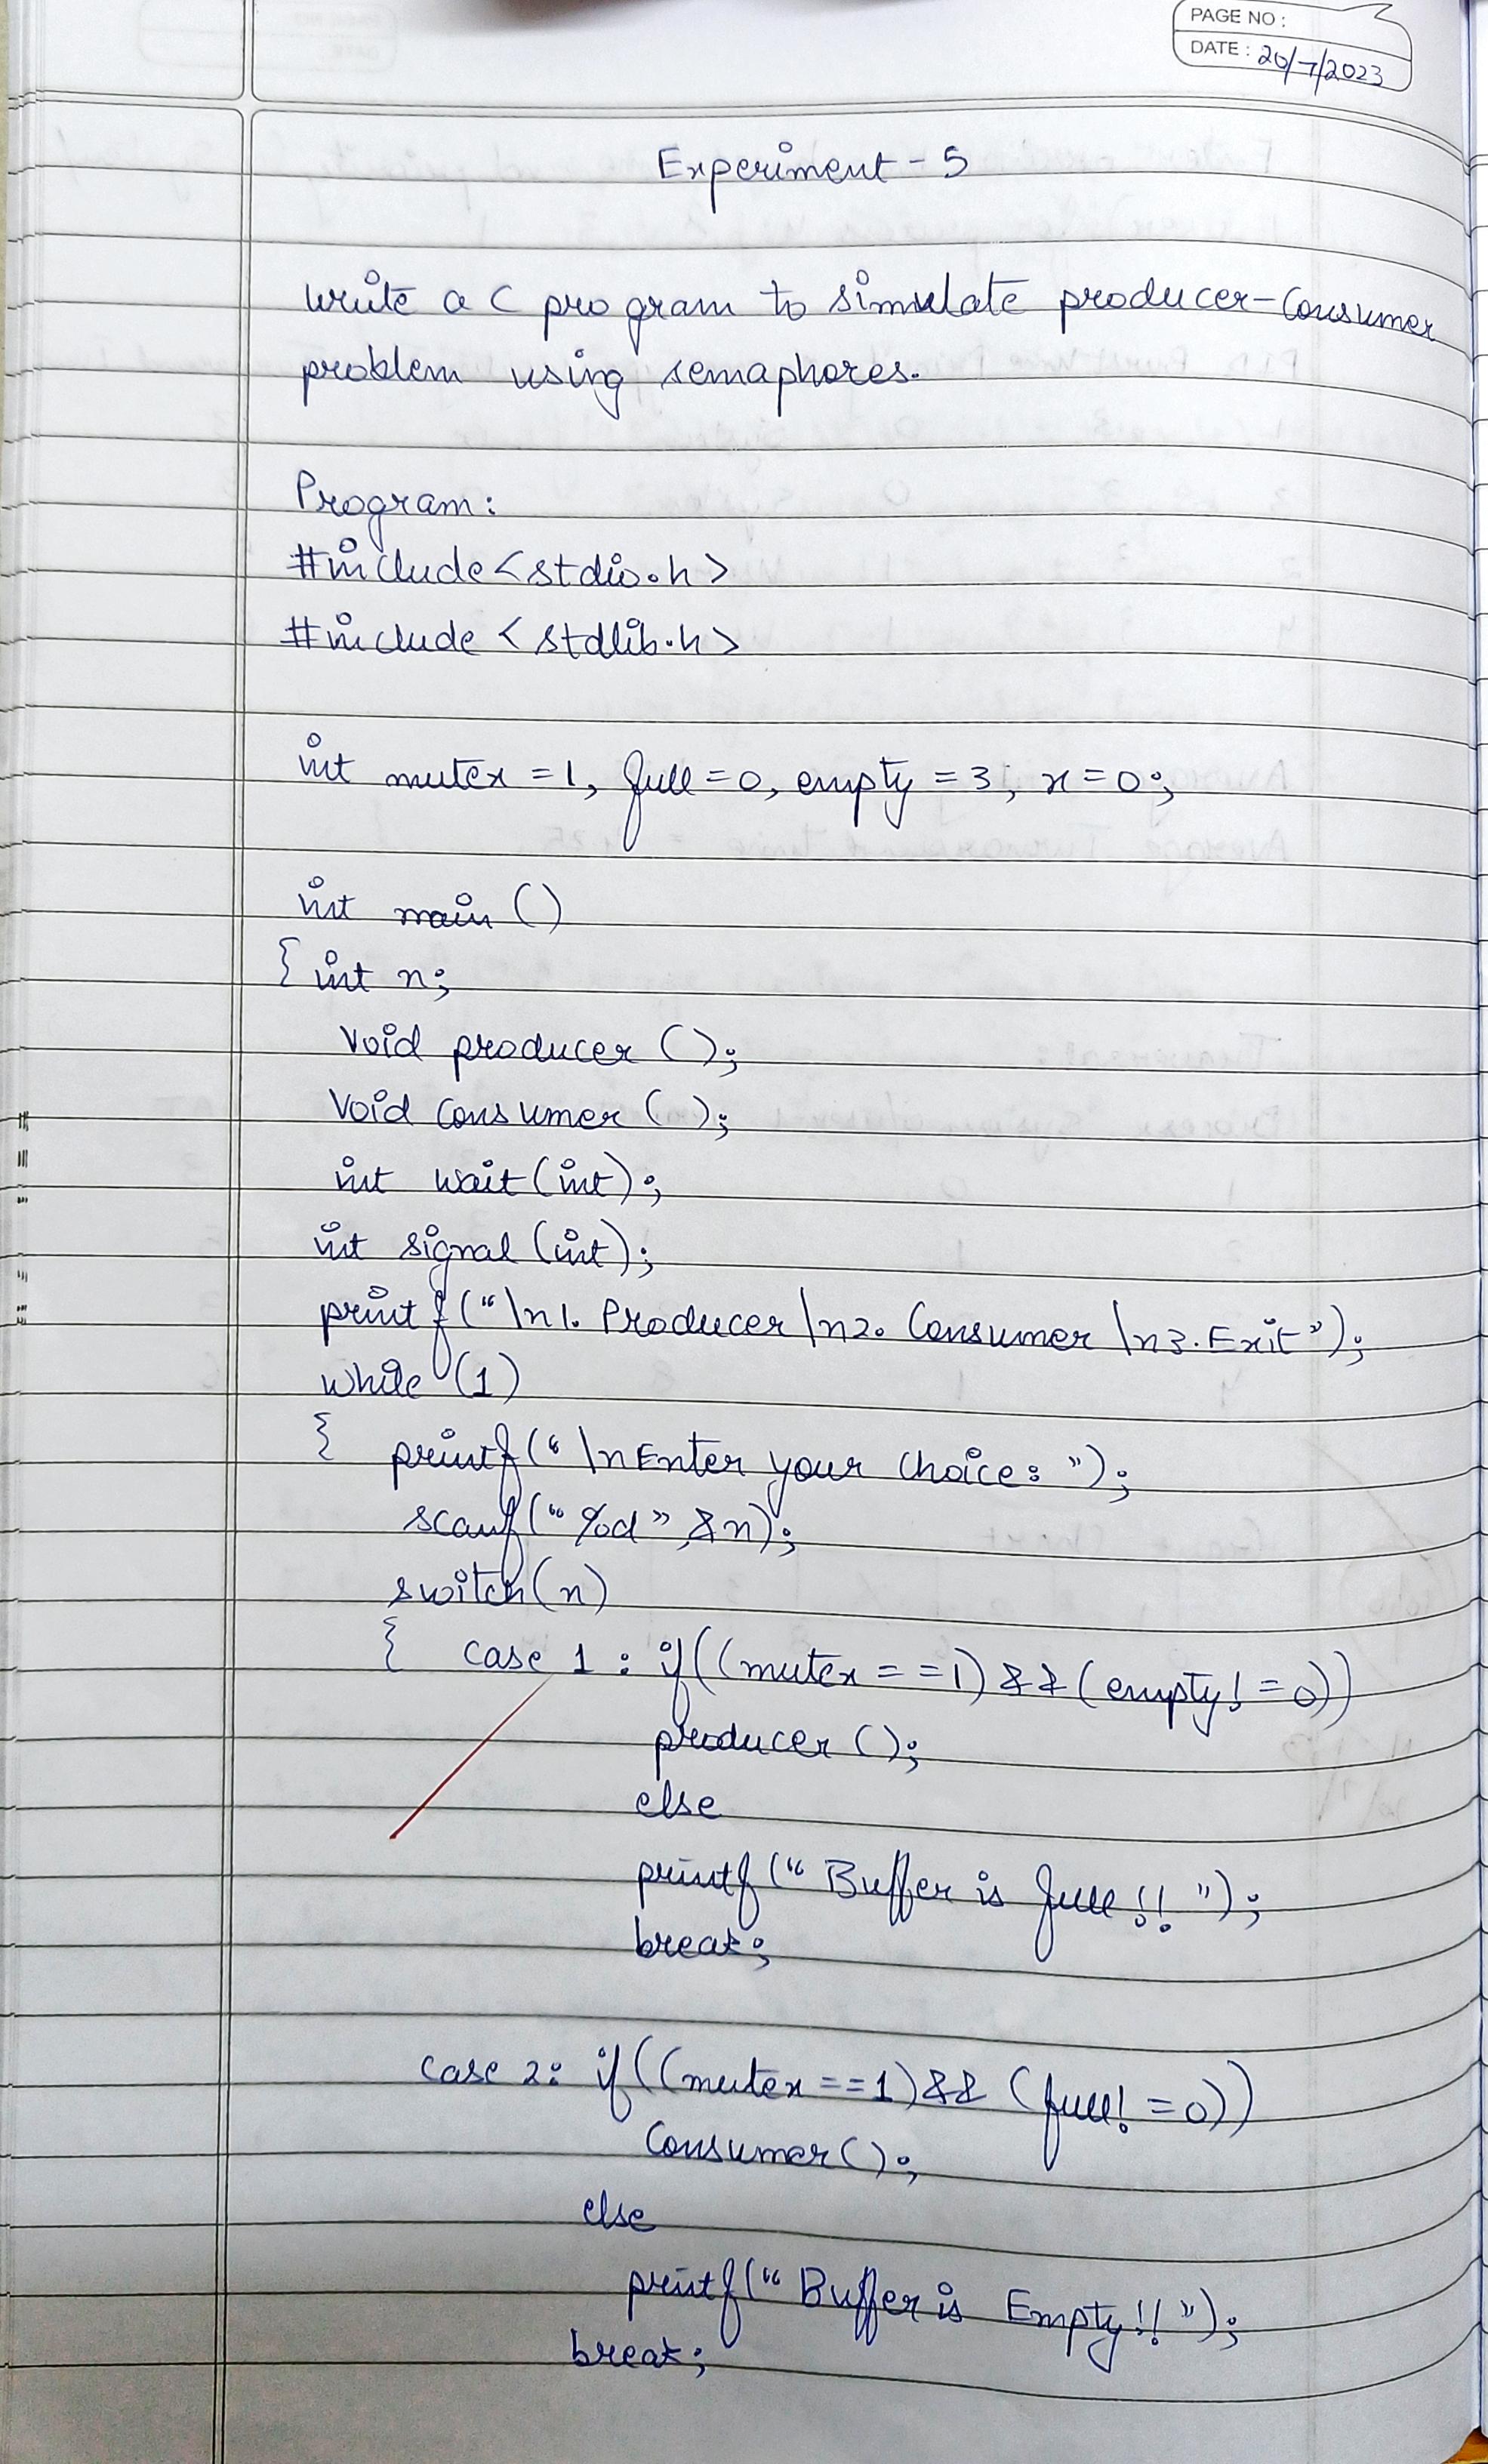 PAGE NO :
DATE : 20/7/2023
Experiment - 5
Write a C program to simulate producer-Consumer
problem using semaphores.
Program:
#include<stdio.h>
#include <stdlib.h>
int mutex = 1, full = 0, empty = 3, x = 0;
int main ()
{ int n;
Void producer ();
Void Consumer ( );
int wait (int);
int signal (int);
printf ("\n1. Producer \n2. Consumer \n3. Exit");
while (1)
{ printf(" \nEnter your Choice: ");
scanf(" %d ", &n);
switch(n)
{ case 1 : if((mutex = =1) && (empty! = 0))
producer ();
else
printf (" Buffer is full !! ");
break;
case 2: if((mutex ==1) && (full! = 0))
Consumer();
else
printf(" Buffer is Empty!! ");
break;